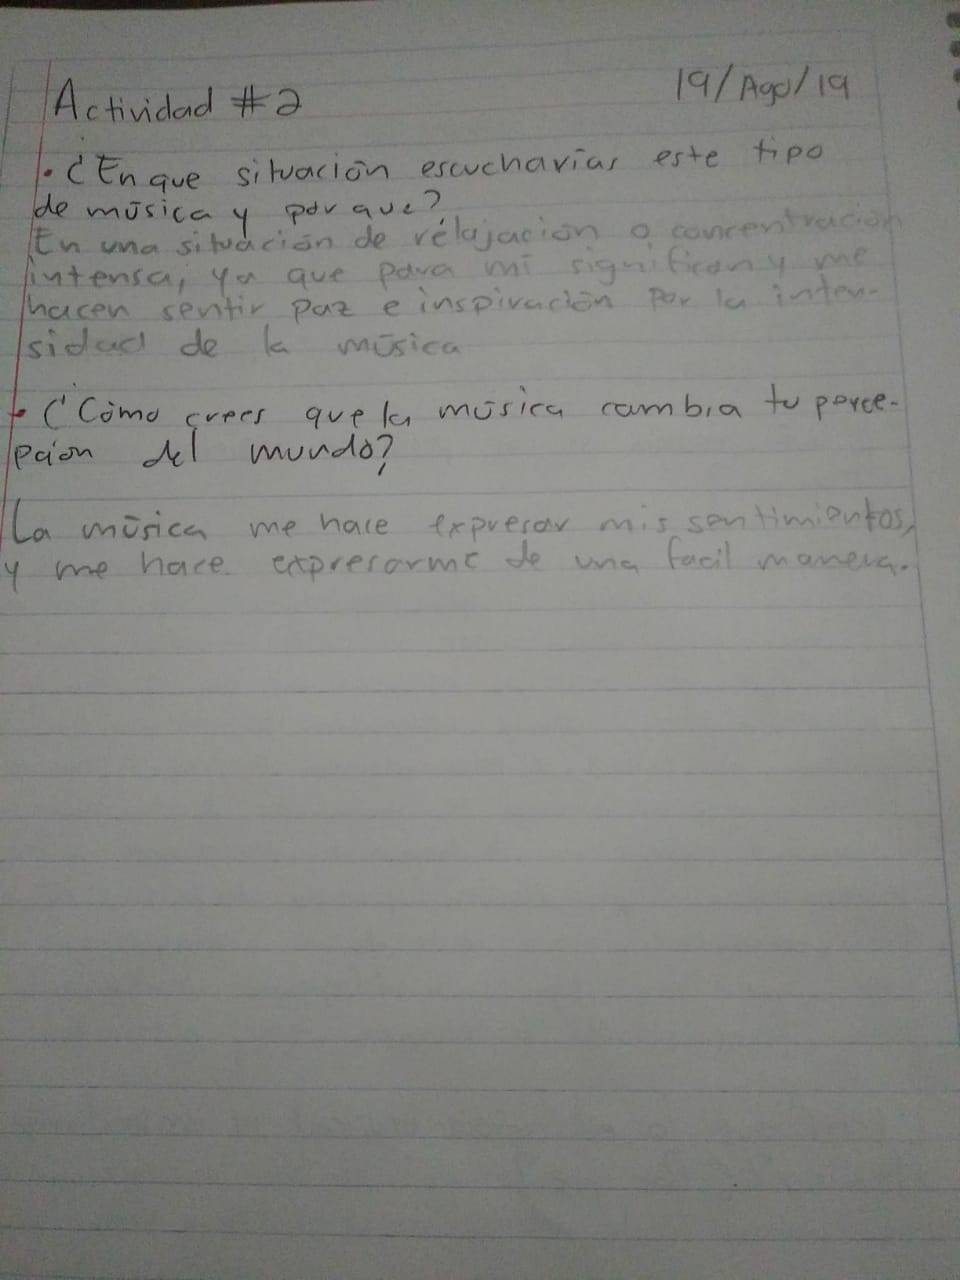 Actividad #2
19/Ago/19
• ¿En que situación escucharías este tipo
de música y por que?
En una situación de relajación o concentración
intensa, ya que para mí significan y me
hacen sentir paz e inspiración por la inten-
sidad de la música
• ¿Cómo crees que la música cambia tu perce-
pción del mundo?
La música me hace expresar mis sentimientos,
y me hace expresarme de una facil manera.